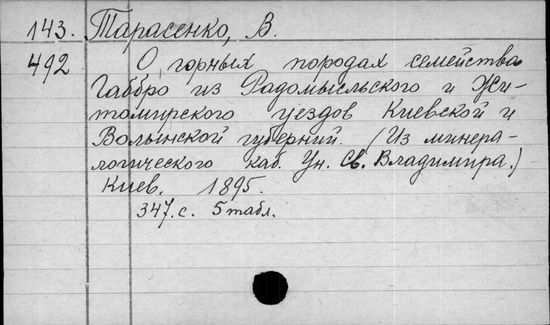 143. Тарасенко, В.
492 О горных породах семейства
Габбро из Радомысльского и Жи-
томирского уездов Киевской и
Волынской губерний. (Из минера-
логического каб. Ун. Св. Владимира.)
Киев. 1895.
347. с. 5 табл.